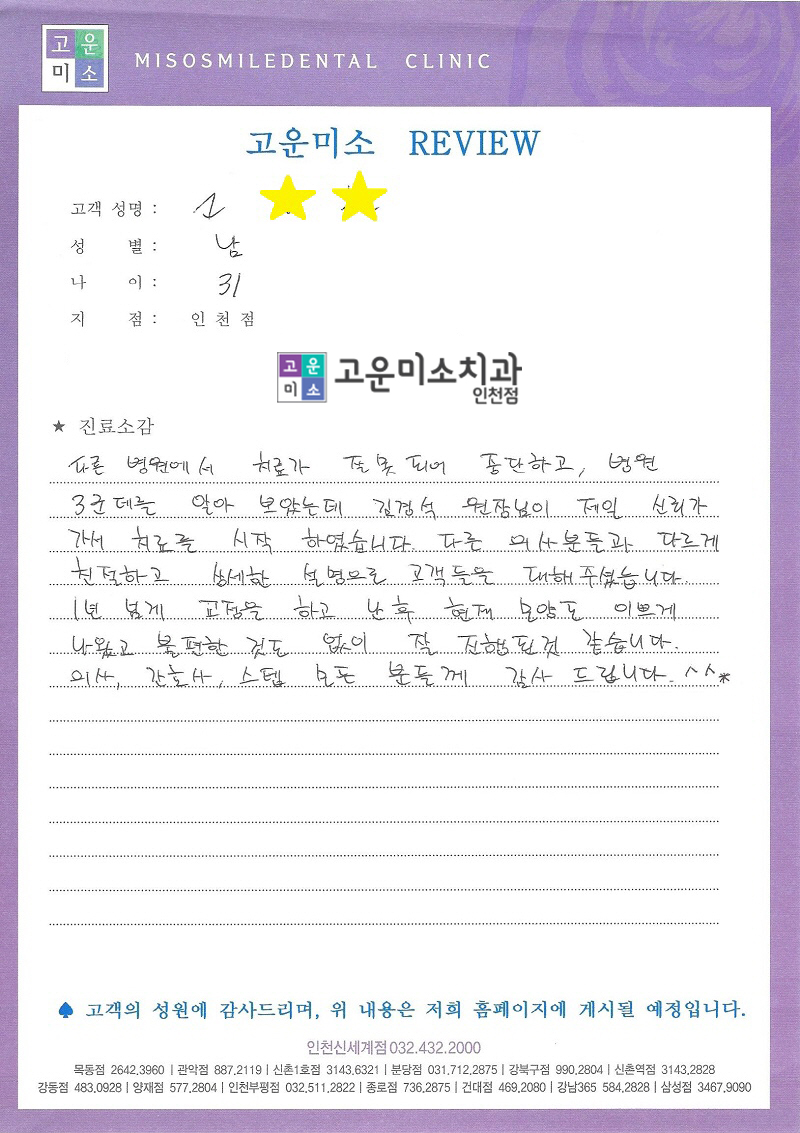 고운
미소
MISOSMILEDENTAL CLINIC
고운미소 REVIEW
고객 성명 :
성 별 : 남
나 이 : 31
지 점 : 인 천 점
고운
미소
고운미소치과
인천점
★ 진료소감
다른 병원에서 치료가 잘못 되어 중단하고, 병원
3군데를 알아 보았는데 김경석 원장님이 제일 신뢰가
가서 치료를 시작 하였습니다. 다른 의사분들과 다르게
친절하고 상세한 설명으로 고객들을 대해 주셨습니다.
1년 넘게 교정을 하고 난 후 현재 모양도 이쁘게
나왔고 불편한 것도 없이 잘 진행 된것 같습니다.
의사, 간호사, 스텝 모든 분들께 감사 드립니다. ^^*
♠ 고객의 성원에 감사드리며, 위 내용은 저희 홈페이지에 게시될 예정입니다.
인천신세계점 032.432.2000
목동점 2642.3960 | 관악점 887.2119 | 신촌1호점 3143.6321 | 분당점 031.712.2875 | 강북구점 990.2804 | 신촌역점 3143.2828
강동점 483.0928 | 양재점 577.2804 | 인천부평점 032.511.2822 | 종로점 736.2875 | 건대점 469.2080 | 강남365 584.2828 | 삼성점 3467.9090